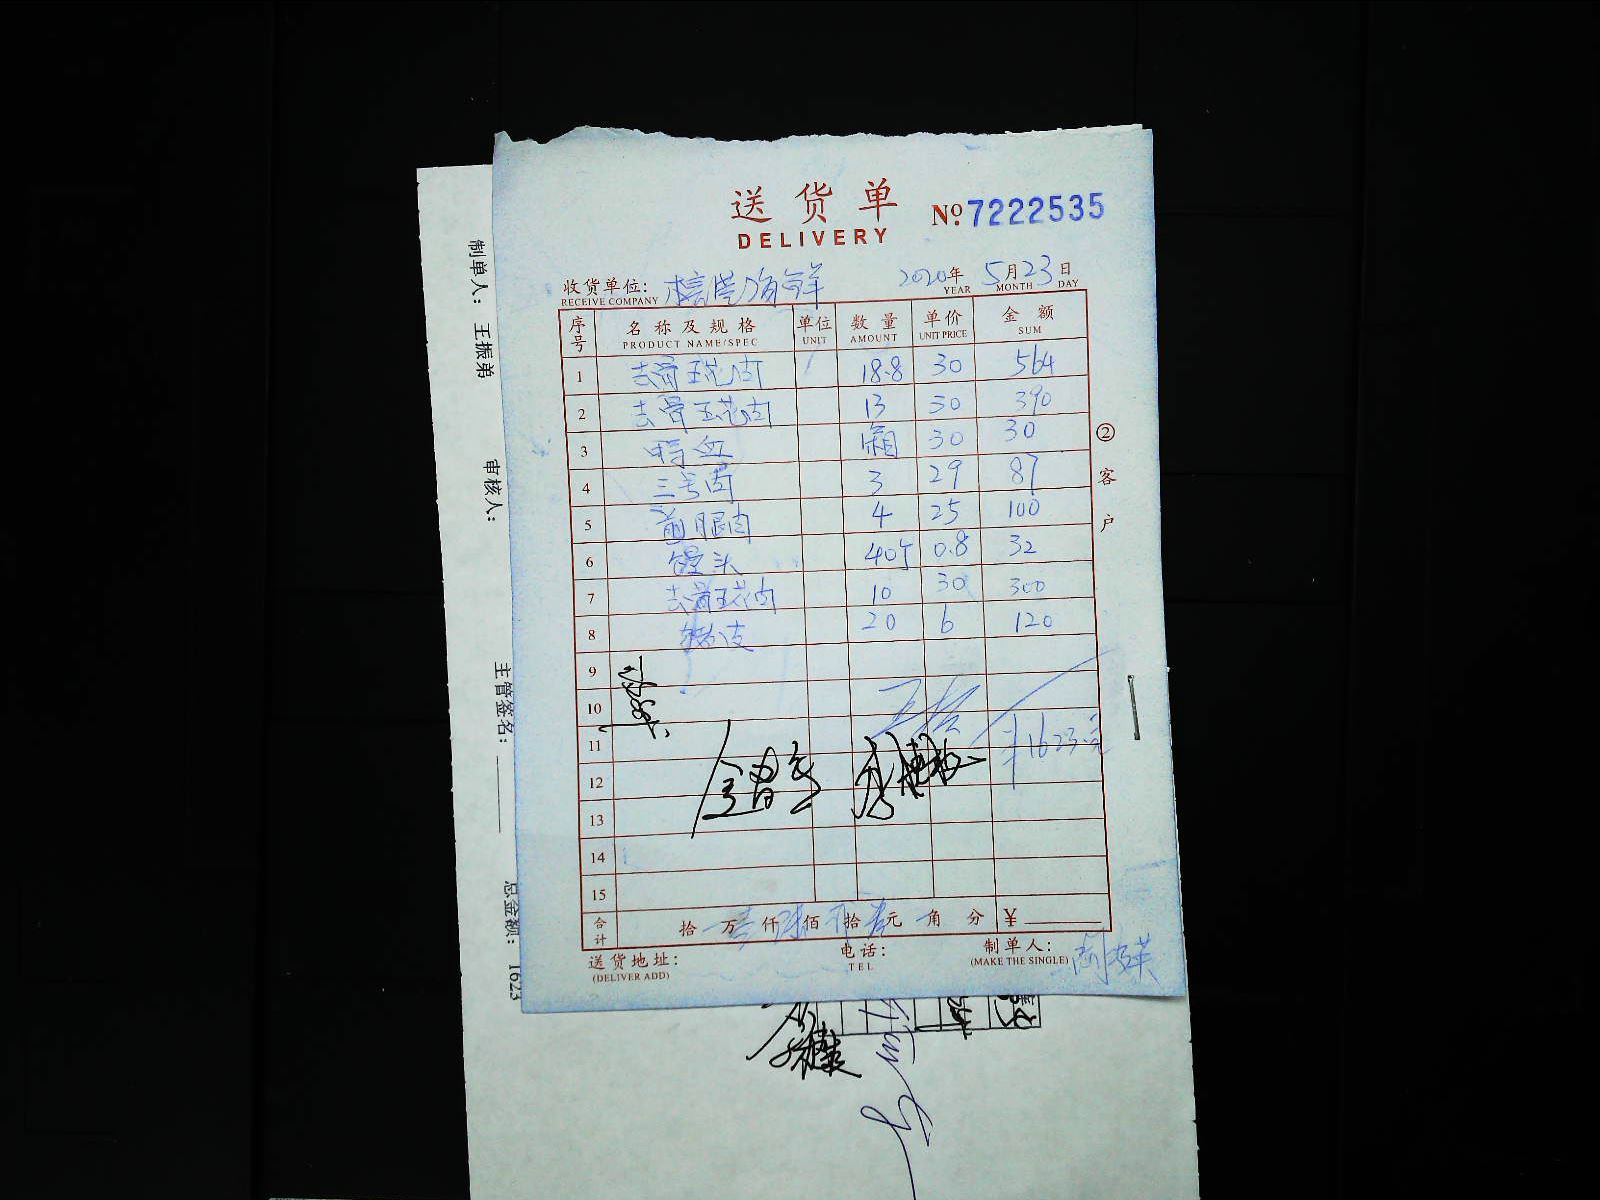 送货单
№ 7222535
DELIVERY
收货单位: 海鲜 2020年 5月23日
RECEIVE COMPANY YEAR MONTH DAY
序号 名称及规格 单位 数量 单价 金额
PRODUCT NAME/SPEC UNIT AMOUNT UNIT PRICE SUM
1 去骨五花肉 18.8 30 564
2 去骨五花肉 13 30 390
3 鸭血 1箱 30 30
4 三号肉 3 29 87
5 前腿肉 4 25 100
6 馒头 40个 0.8 32
7 去骨五花肉 10 30 300
8 猪皮 20 6 120
9
10
11 ¥1623元
12
13
14
15
合计 拾 万壹仟陆佰 拾 元 角 分 ¥
送货地址: 电话: 制单人:
(DELIVER ADD) TEL (MAKE THE SINGLE)
②客户
制单人: 王振弟
审核人:
主管签名:
总金额: 1623